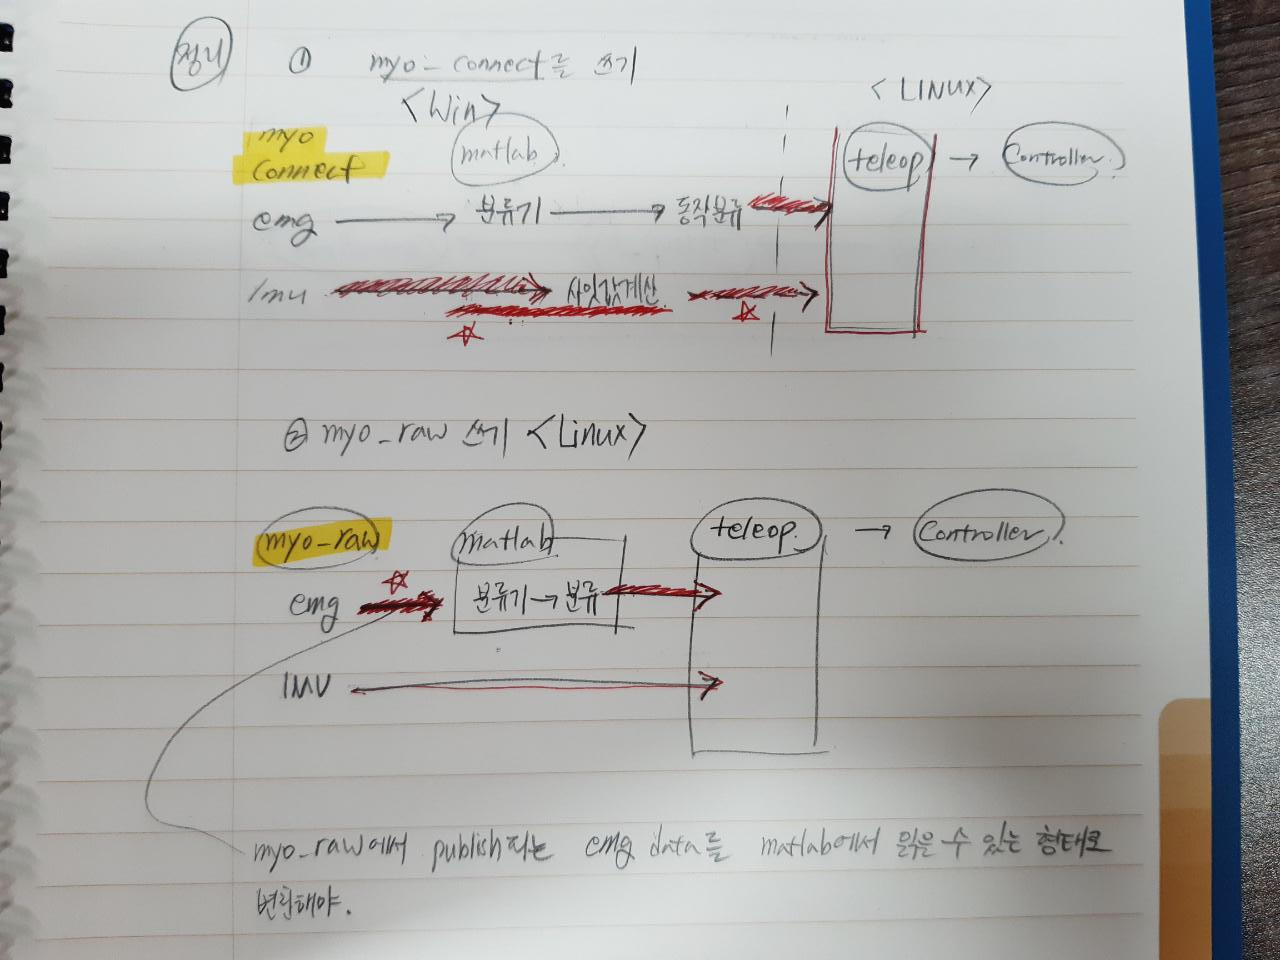 정리 ① myo-connect를 쓰기
<Win> <LINUX>
myo
connect
matlab
teleop → Controller
emg → 분류기 → 동작분류
Imu 사잇값계산
② myo-raw 쓰기 <Linux>
myo-raw matlab teleop → Controller
emg 분류기→분류
IMU
myo-raw에서 publish되는 emg data를 matlab에서 읽을 수 있는 형태로
변환해야.